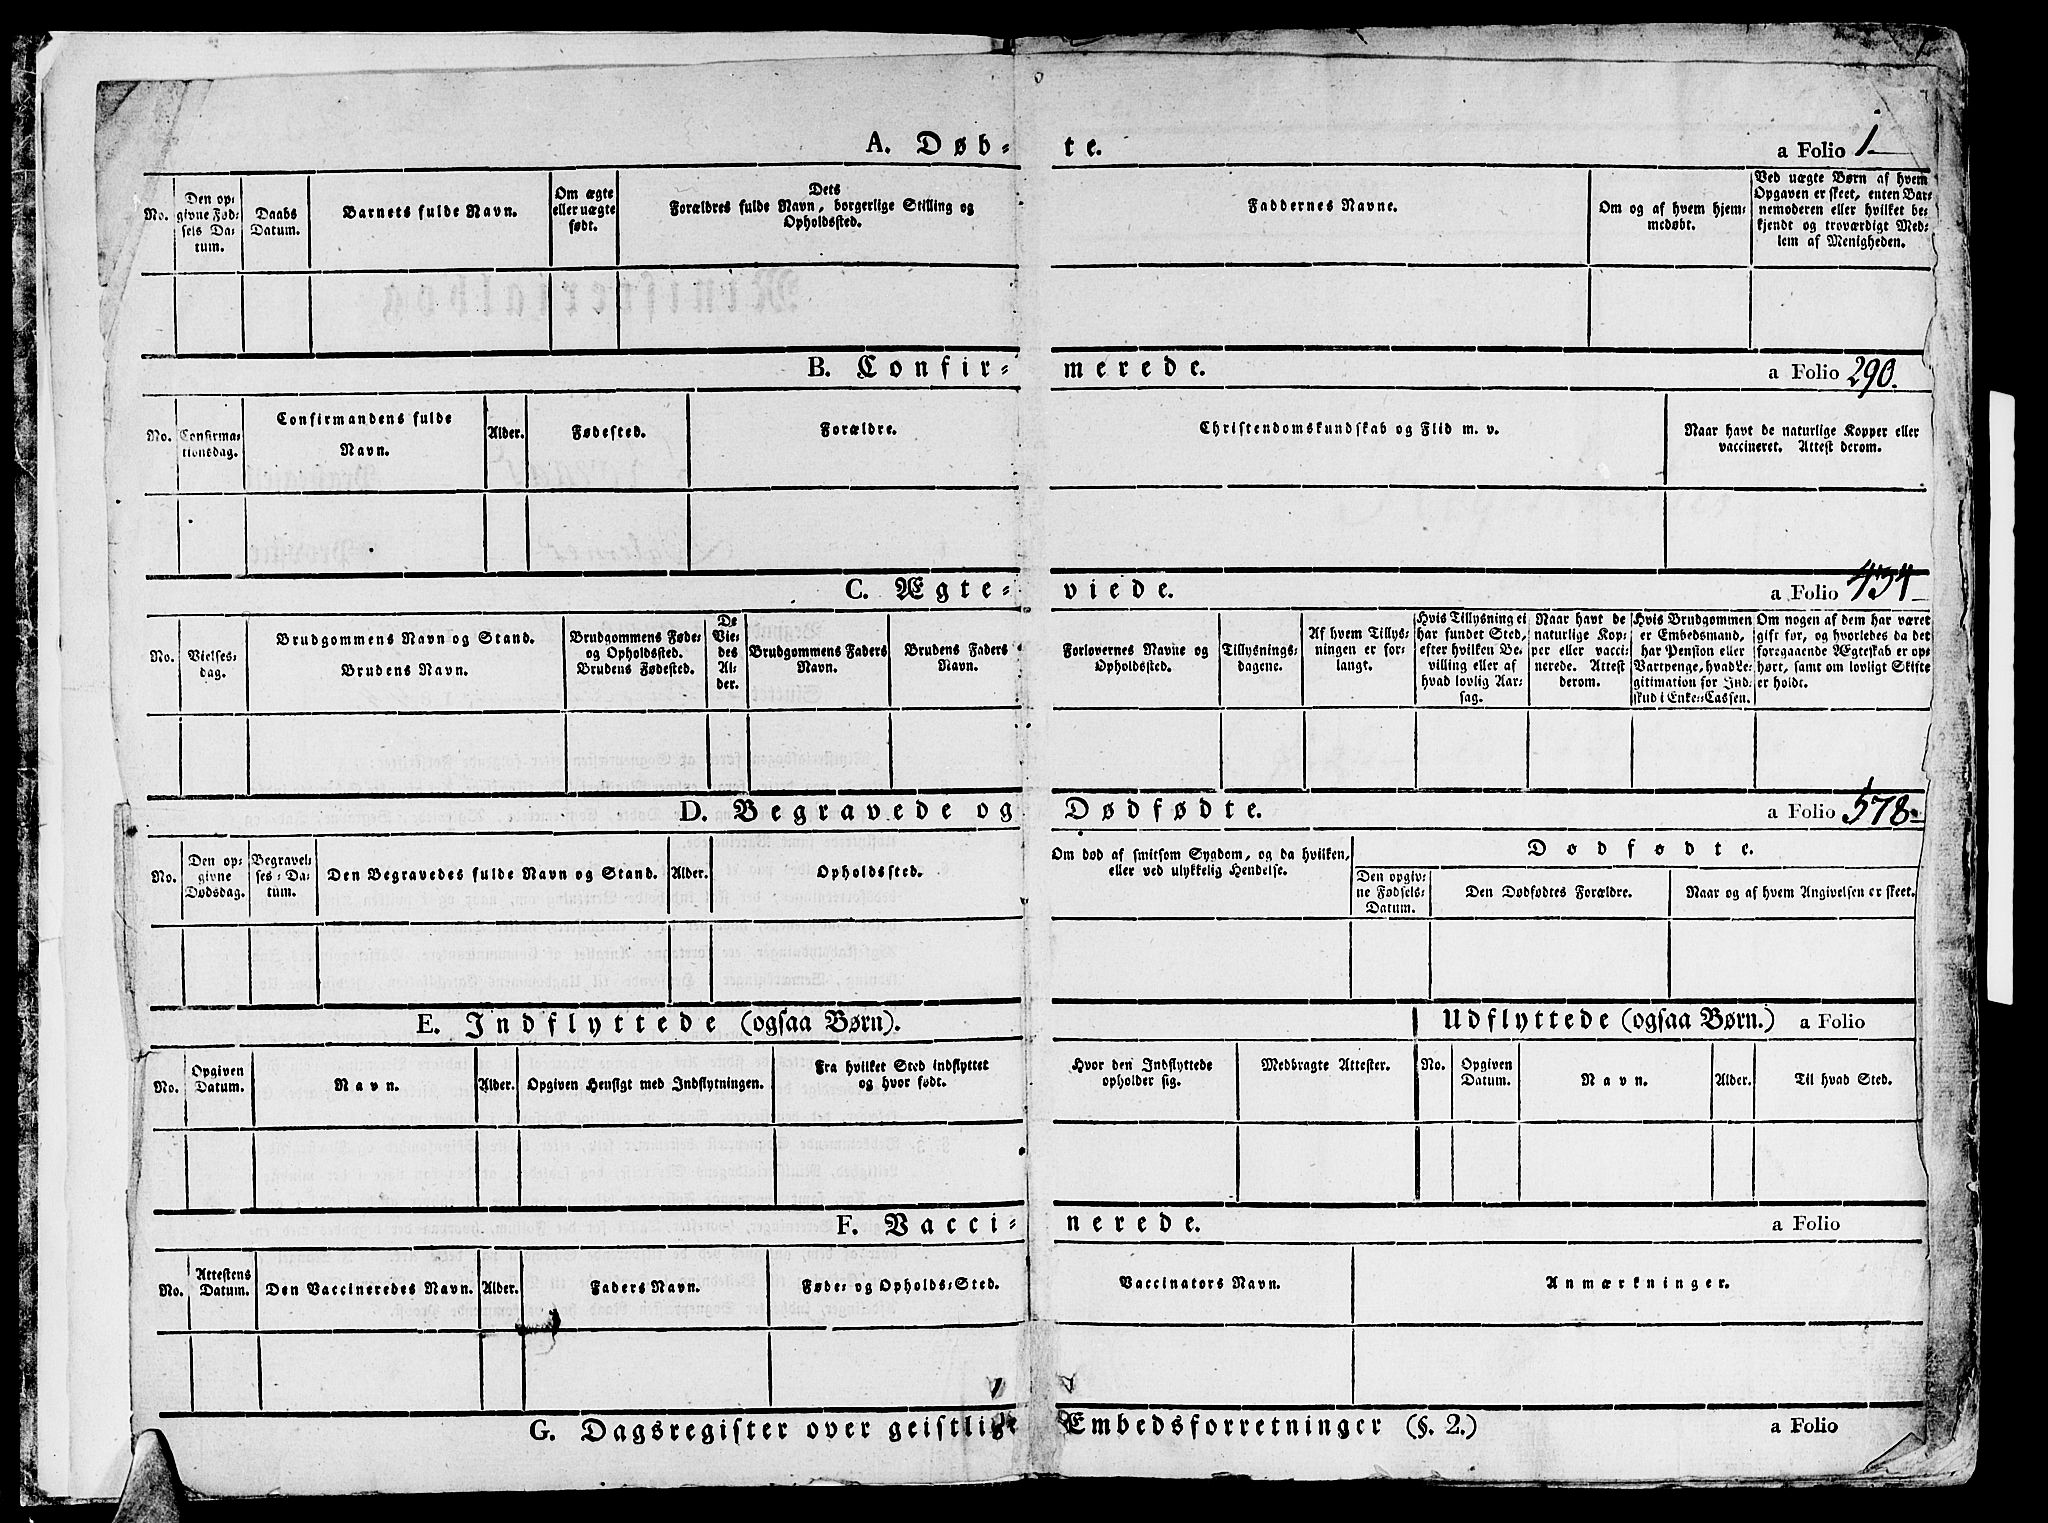 A. Døb- te. a Folio 1
No.
Den op-
givne Fød-
sels Da-
tum.
Daabs
Datum.
Barnets fulde Navn.
Om ægte
eller uægte
født.
Dets
Forældres fulde Navn, borgerlige Stilling og
Opholdssted.
Faddernes Navne.
Om og af hvem hjem-
medøbt.
Ved uægte Børn af hvem
Opgaven er skeet, enten Bar-
nemoderen eller hvilket be-
kjendt og troværdigt Med-
lem af Menigheden.
B. Confir- merede. a Folio 290.
No.
Confirma-
tionsdag.
Confirmandens fulde
Navn.
Alder.
Fødested.
Forældre.
Christendomskundskab og Flid m. v.
Naar havt de naturlige Kopper eller
vaccineret. Attest derom.
C. Ægte- viede. a Folio 434
No.
Vielses-
dag.
Brudgommens Navn og Stand.
Brudens Navn.
Brudgommens Føde-
og Opholdssted.
Brudens Fødested.
De
Vie-
des
Al-
der.
Brudgommens Faders
Navn.
Brudens Faders
Navn.
Forlovernes Navne og
Opholdssted.
Tillysnings-
dagene.
Af hvem Tillys-
ningen er for-
langt.
Hvis Tillysning ei
har fundet Sted,
efter hvilken Be-
villing eller af
hvad lovlig Aar-
sag.
Naar havt de
naturlige Kop-
per eller vacci-
nerede. Attest
derom.
Hvis Brudgommen
er Embedsmand,
har Pension eller
Vartpenge, hvad Le-
gitimation for Ind-
skud i Enke-Cassen.
Om nogen af dem har været
gift før, og hvorledes da det
foregaaende Ægteskab er op-
hørt, samt om lovligt Skifte
er holdt.
D. Begravede og Dødfødte. a Folio 578.
No.
Den op-
givne
Dødsdag.
Begravel-
ses-Da-
tum.
Den Begravedes fulde Navn og Stand.
Alder.
Opholdssted.
Om død af smitsom Sygdom, og da hvilken,
eller ved ulykkelig Hendelse.
Dødfødte.
Den opgiv-
ne Fødsels-
Datum.
Den Dødfødtes Forældre.
Naar og af hvem Angivelsen er skeet.
E. Indflyttede (ogsaa Børn). Udflyttede (ogsaa Børn.) a Folio
No.
Opgiven
Datum.
Navn.
Alder.
Opgiven Hensigt med Indflytningen.
Fra hvilket Sted indflyttet
og hvor født.
Hvor den Indflyttede
opholder sig.
Medbragte Attester.
No.
Opgiven
Datum.
Navn.
Alder.
Til hvad Sted.
F. Vacci- nerede. a Folio
No.
Attestens
Datum.
Den Vaccineredes Navn.
Alder.
Faders Navn.
Føde- og Opholds-Sted.
Vaccinators Navn.
Anmærkninger.
G. Dagsregister over geistlige Embedsforretninger (§. 2.) a Folio